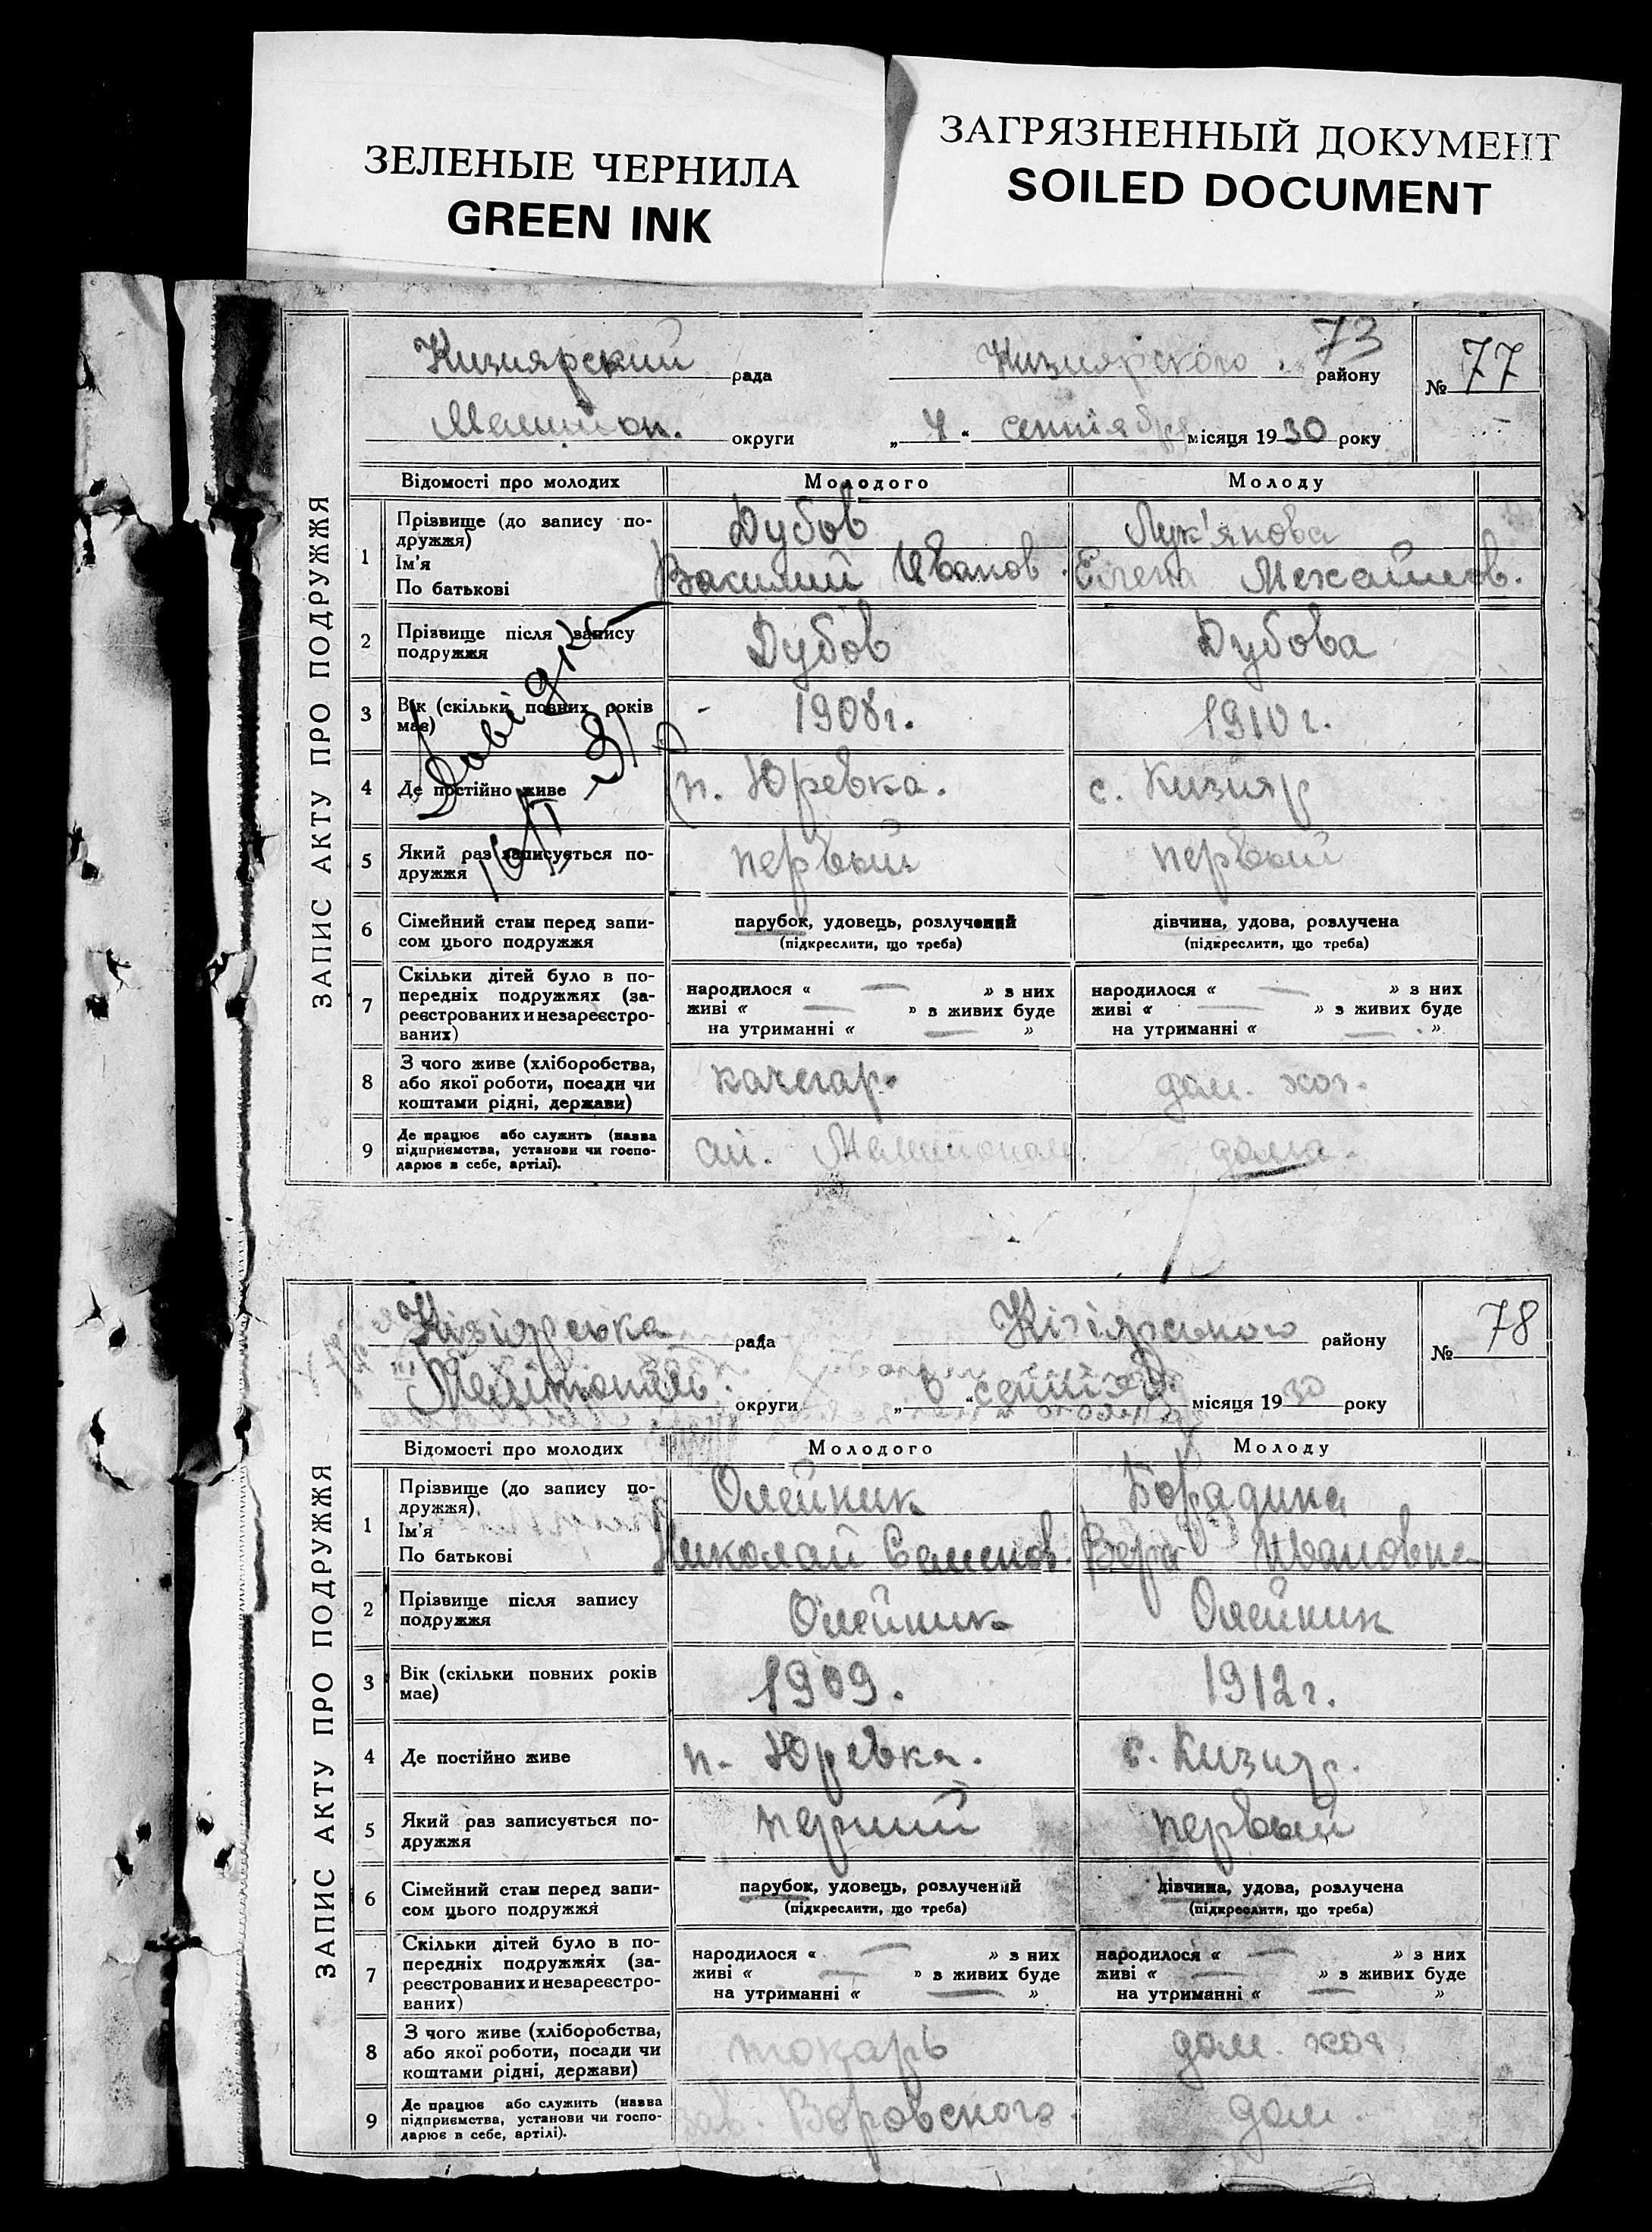 ЗЕЛЕНЫЕ ЧЕРНИЛА
GREEN INK
ЗАГРЯЗНЕННЫЙ ДОКУМЕНТ
SOILED DOCUMENT
73
Кизиярский рада Кизиярского району № 77
округи „ 4 “ сентября місяця 1930 року
ЗАПИС АКТУ ПРО ПОДРУЖЖЯ
Відомості про молодих Молодого Молоду
1 Прізвище (до запису по-
дружжя) Дубов Лук'янова
Ім'я
По батькові Василий Иванов. Елена Михайлов.
2 Прізвище після запису
подружжя Дубов Дубова
3 Вік (скільки повних років
має) 1908г. 1910г.
4 Де постійно живе п. Юревка. с. Кизияр
5 Який раз записується по-
дружжя первый первый
6 Сімейний стан перед запи-
сом цього подружжя
парубок, удовець, розлучений
(підкреслити, що треба)
дівчина, удова, розлучена
(підкреслити, що треба)
7 Скільки дітей було в по-
передніх подружжях (за-
реєстрованих и незареєстро-
ваних)
народилося « — » з них
живі « — » з живих буде
на утриманні « — »
народилося « — » з них
живі « — » з живих буде
на утриманні « — »
8 З чого живе (хліборобства,
або якої роботи, посади чи
коштами рідні, держави) дом. хоз.
9 Де працює або служить (назва
підприємства, установи чи госпо-
дарює в себе, артілі). дома.
Кізіярська рада Кізіярського району № 78
округи „ “ місяця 1930 року
ЗАПИС АКТУ ПРО ПОДРУЖЖЯ
Відомості про молодих Молодого Молоду
1 Прізвище (до запису по-
дружжя) Олейник
Ім'я
По батькові Николай Семенов. Вера Ивановна
2 Прізвище після запису
подружжя Олейник Олейник
3 Вік (скільки повних років
має) 1909. 1912г.
4 Де постійно живе п. Юревка. с. Кизияр.
5 Який раз записується по-
дружжя перший первый
6 Сімейний стан перед запи-
сом цього подружжя
парубок, удовець, розлучений
(підкреслити, що треба)
дівчина, удова, розлучена
(підкреслити, що треба)
7 Скільки дітей було в по-
передніх подружжях (за-
реєстрованих и незареєстро-
ваних)
народилося « — » з них
живі « — » з живих буде
на утриманні « — »
народилося « — » з них
живі « — » з живих буде
на утриманні « — »
8 З чого живе (хліборобства,
або якої роботи, посади чи
коштами рідні, держави) токарь дом. хоз.
9 Де працює або служить (назва
підприємства, установи чи госпо-
дарює в себе, артілі). зав. Воровского. дом.